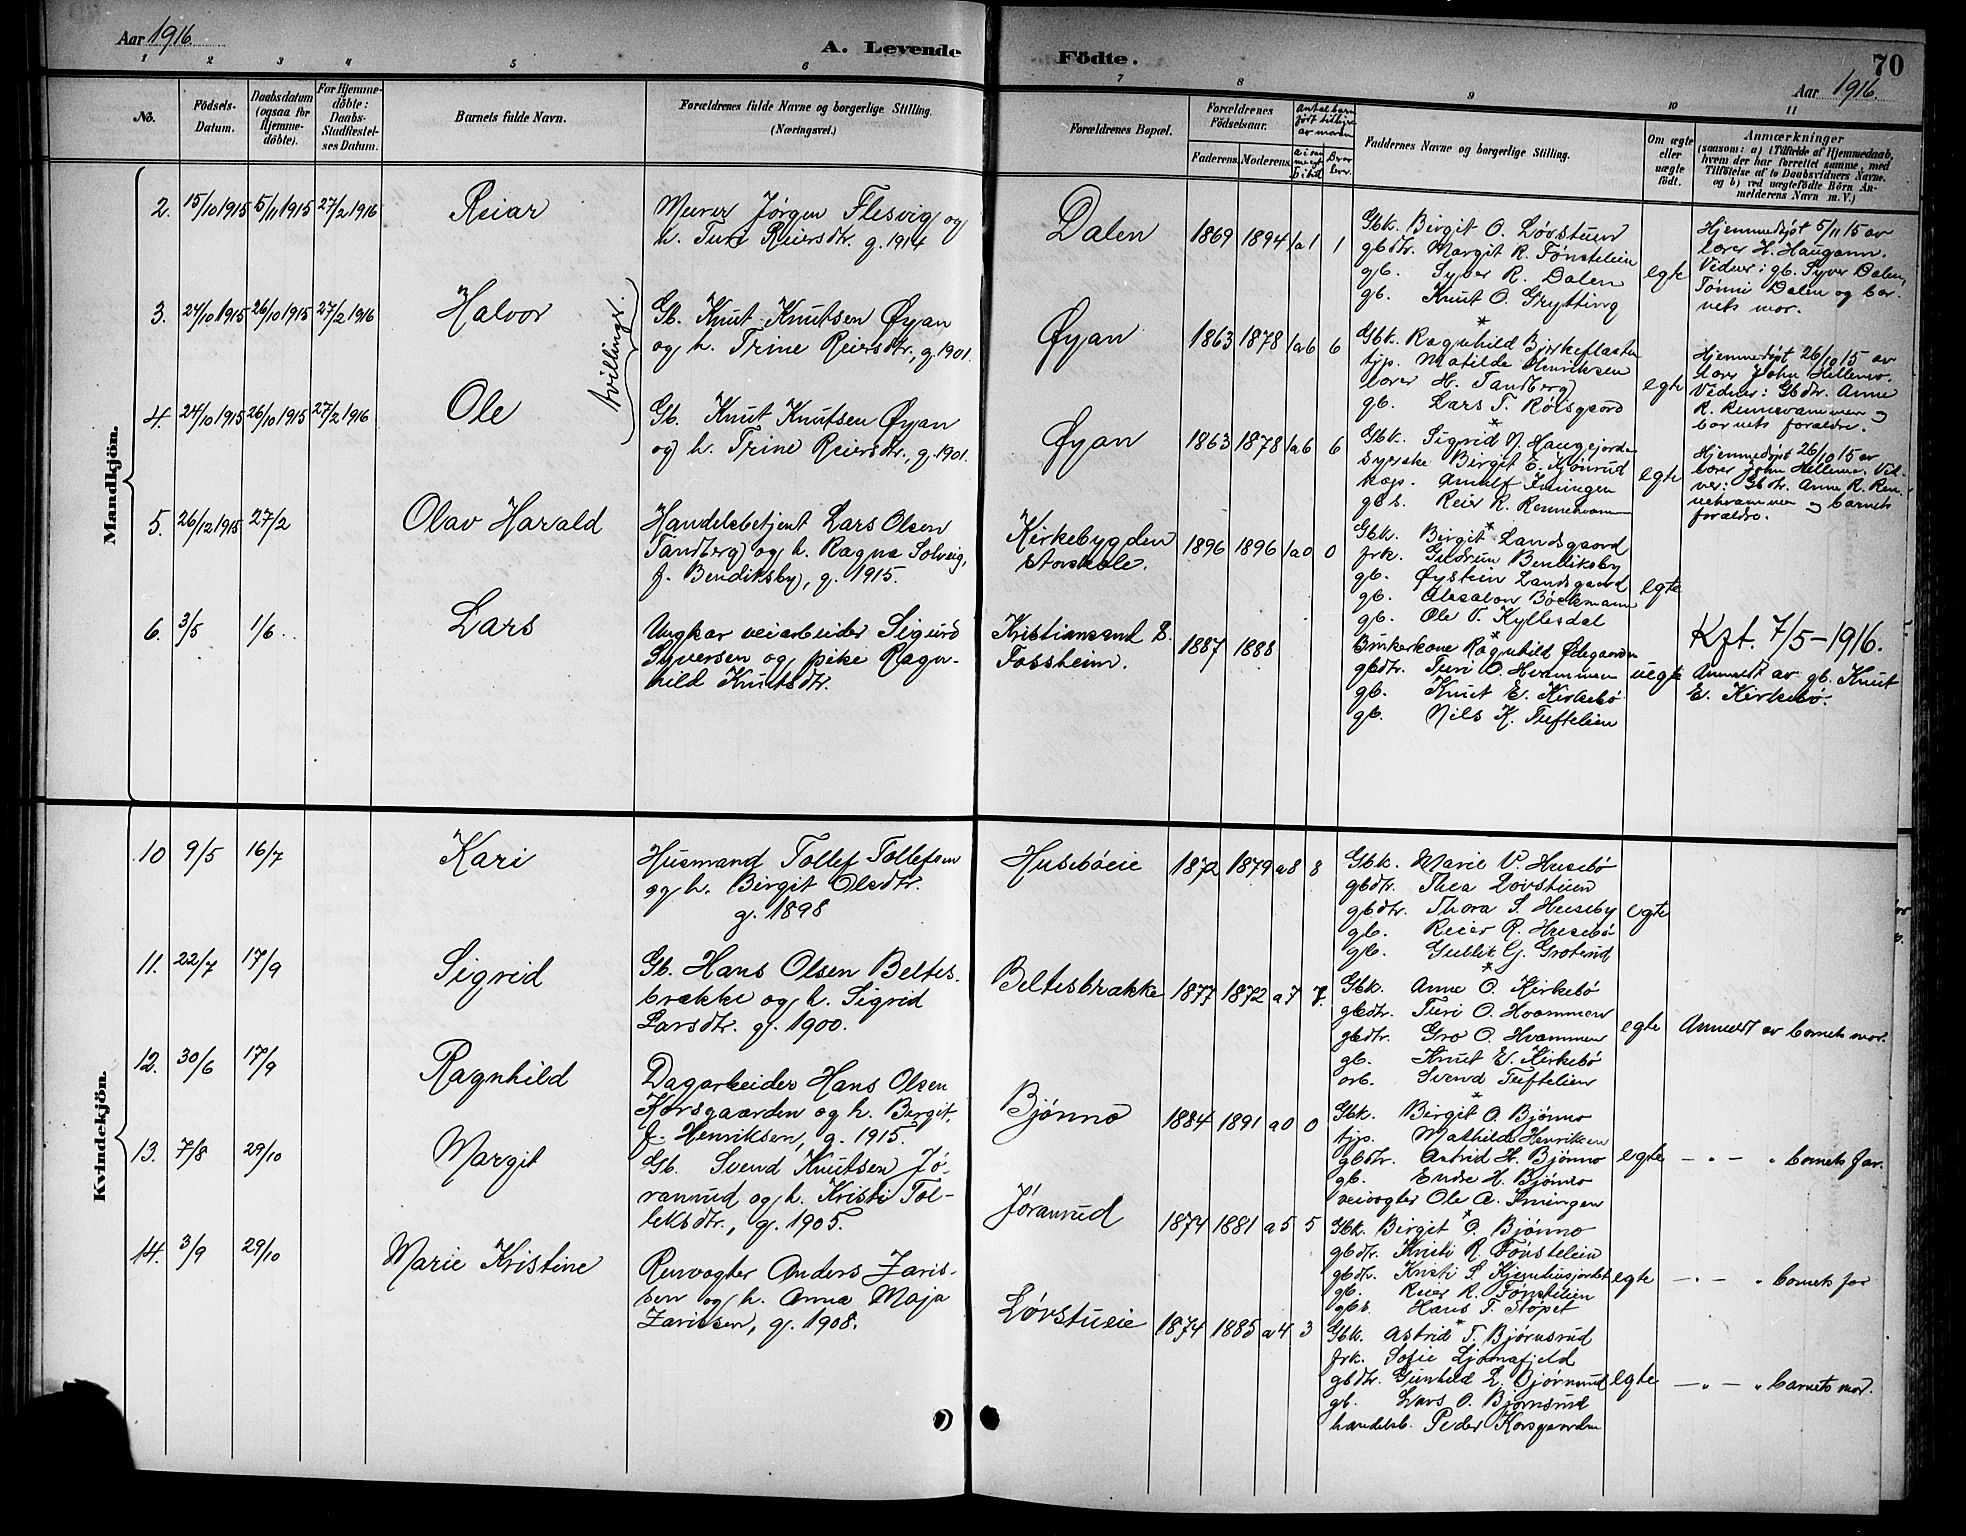 Aar 1916
A. Levende
1 2 3 4 5 6
No.
Födsels-
Datum.
Daabsdatum
(ogsaa for
Hjemme-
döbte).
For Hjemme-
döbte:
Daabs-
Stadfæstel-
ses Datum.
Barnets fulde Navn.
Forældrenes fulde Navne og borgerlige Stilling.
(Næringsvei.)
Mandkjön.
2. 15/10 1915 5/11 1915 27/2 1916 Reiar
Murer Jørgen Flesvig og
h. Turi Reiersdtr. g. 1914
3. 24/10 1915 26/10 1915 27/2 1916 Halvor
tvillinger.
Gb. Knut Knutsen Øyan
og h. Trine Reiersdtr., g. 1901.
4. 24/10 1915 26/10 1915 27/2 1916 Ole
Gb. Knut Knutsen Øyan
og h. Trine Reiersdtr., g. 1901.
5. 26/12 1915 27/2 Olav Harald
Handelsbetjent Lars Olsen
Tandberg og h. Ragna Solveig,
f. Bendiksby, g. 1915.
6. 3/5 1/6. Lars
Ungkar veiarbeider Sigurd
Syversen og pike Ragn-
hild Knutsdtr.
Kvindekjön.
10 9/5 16/7 Kari
Husmand Tollef Tollefsen
og h. Birgit Olsdtr.
g. 1898
11. 22/7 17/9 Sigrid
Gb. Hans Olsen Beltes-
brække og h. Sigrid
Larsdtr. g. 1900.
12. 30/6 17/9 Ragnhild
Dagarbeider Hans Olsen
Korsgaarden og h. Bergit,
f. Henriksen, g. 1915.
13. 7/8 29/10 Margit
Gb. Svend Knutsen Jø-
ranrud og h. Kristi Tol-
leksdtr., g. 1905.
14. 3/9 29/10 Marie Kristine
Renvogter Anders Zaris-
sen og h. Anna Maja
Zarissen, g. 1908.
Födte.
70
Aar 1916
7 8 9 10 11
Forældrenes Bopæl.
Forældrenes
Födselsaar.
Faderens. Moderens.
Antal barn
født tidligere
av moren
Faddernes Navne og borgerlige Stilling.
Om ægte
eller
uægte
födt.
Anmærkninger
(saasom: a) i Tilfælde af Hjemmedaab,
hvem der har forrettet samme, med
Tilföielse af to Daabsvidners Navne.
og b) ved uægtefödte Börn An-
melderens Navn m. V.)
Dalen 1869 1894 1 a 1 1
Gbk. Birgit O. Løvstuen
gbdtr. Margit R. Fønstelien
gb. Syver R. Dalen
gb. Knut O. Grytting
egte
Hjemmedøpt 5/11 15 av
lærer H. Haugann.
Vidner: gb. Syver Dalen,
Tønni Dalen og bar-
nets mor.
Øyan 1863 1878 1 a 6 6
Gbk. Ragnhild Bjerkeflaaten
tjp. Matilde Henriksen
lærer H. Tandberg
gb. Lars T. Rolsgaard
egte
Hjemmedøpt 26/10 15 av
lærer John Hellemo.
Vidner: Gbdtr. Anne
R. Rennevammen og
barnets foraldre.
Øyan 1863 1878 1 a 6 6
Gbk. Sigrid N. Haugejorden
syerske Birgit E. Kjønrud
kap. Arnulf Iningen
gbs. Reier R. Rennehvammen
egte
Hjemmedøpt 26/10 15 av
lærer John Hellemo. Vid-
ner: Gbdtr. Anne R. Ren-
nehvammen og barnets
foraldre.
Kirkebygden
storskole.
1896 1896 1 a 0 0
Gbk. Birgit Landsgaard
frk. Gudrun Bendiksby
gb. Øystein Landsgaard
gb. Absalon Böckmann
gb. Ole T. Kyllesdal
egte
Kristiansand S.
Fossheim.
1887 1888
Brukerkone Ragnhild Ødegaarden
gbdtr. Turi O. Hvammen
gb. Knut E. Kirkebø
gb. Nils K. Tuftelien
uegte
Kzft. 7/5-1916.
Anmeldt av gb. Knut
E. Kirkebö.
Husebøeie 1872 1879 a 8 8
Gbk. Marie V. Husebö
gbdtr. Thea Lovstuen
gbdtr. Thora S. Huseby
gb. Reier R. Husebö
gb. Gullik G. Grotrud
egte
Beltesbrække 1877 1872 a 7 7.
Gbk. Anne O. Kirkebö
gbdtr. Turi O. Hvammen
gbdtr. Gro O. Hvammen
gb. Knut E. Kirkebö
arb. Svend Tuftelien
egte
Anmeldt av barnets mor.
Bjønno 1884 1891 a 0 0
Gbk. Birgit O. Bjönno
tjp. Mathilde Henriksen
gbdtr. Astrid H. Bjönno
gb. Endre H. Bjönno
veivogter Ole A. Iningen
egte
— " — " barnets far.
Jøranrud 1874 1881 a 5 5
Gbk. Birgit O. Bjönno
gbdtr. Kristi R. Fønstelien
gbdtr. Kristi S. Kjemhusjordet
gb. Reier R. Fønstelien
gbs. Hans T. Stopet
egte
— " — " barnets far
Løvstueie 1874 1885 a 4 3
Gbk. Astrid T. Bjørnsrud
frk. Sofie Ljonafjeld
gbdtr. Gunhild L. Bjørnsrud
gb. Lars O. Bjørnsrud
handelsb. Peder Korsgaarden
egte
— " — " barnets mor.